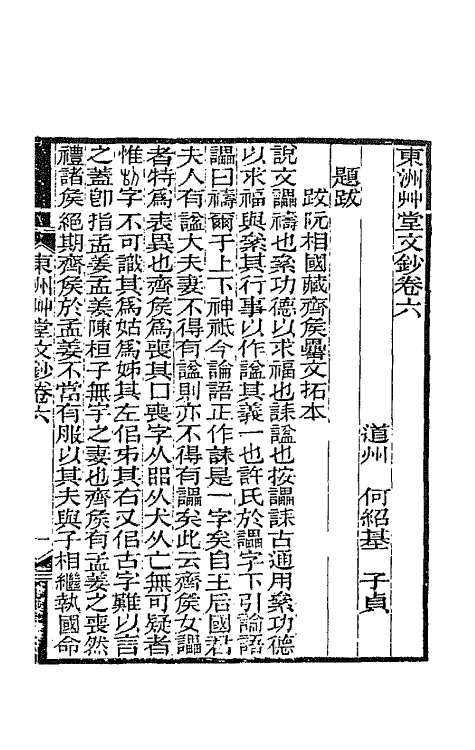 東洲艸堂文鈔卷六
道州 何紹基 子貞
題跋
跋阮相國藏齊矦罍文拓本
說文讄禱也絫功德以求福也誄諡也按讄誄古通用絫功德
以求福與絫其行事以作諡其義一也許氏於讄字下引論語
讄曰禱爾于上下神祗今論語正作誄是一字矣自王后國君
夫人有諡大夫妻不得有諡則亦不得有讄矣此云齊矦女讄
者特為表異也齊矦為喪其口喪字从㗊从犬从亡無可疑者
惟字不可識其為姑為姊其左侣其右又侣古字難以言
之蓋卽指孟姜孟姜陳桓子無宇之妻也齊矦有孟姜之喪然
禮諸矦絕期齊矦於孟姜不當有服以其夫與子相繼執國命
東洲艸堂文鈔卷六
一